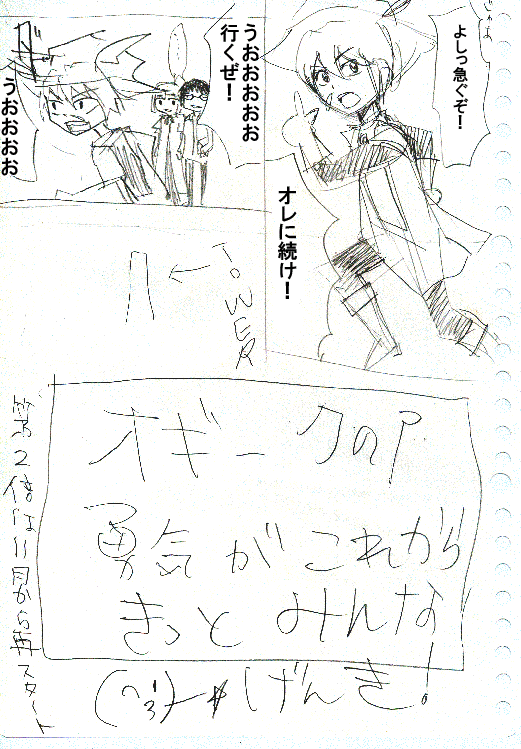 じゃあ
よしっ急ぐぞ!
オレに続け!
うおおおおお
行くぜ!
うおおおお
TOWER
オギー クのア
勇気がこれから
きっとみんな
げんき!
第2倍は11月から再スタート